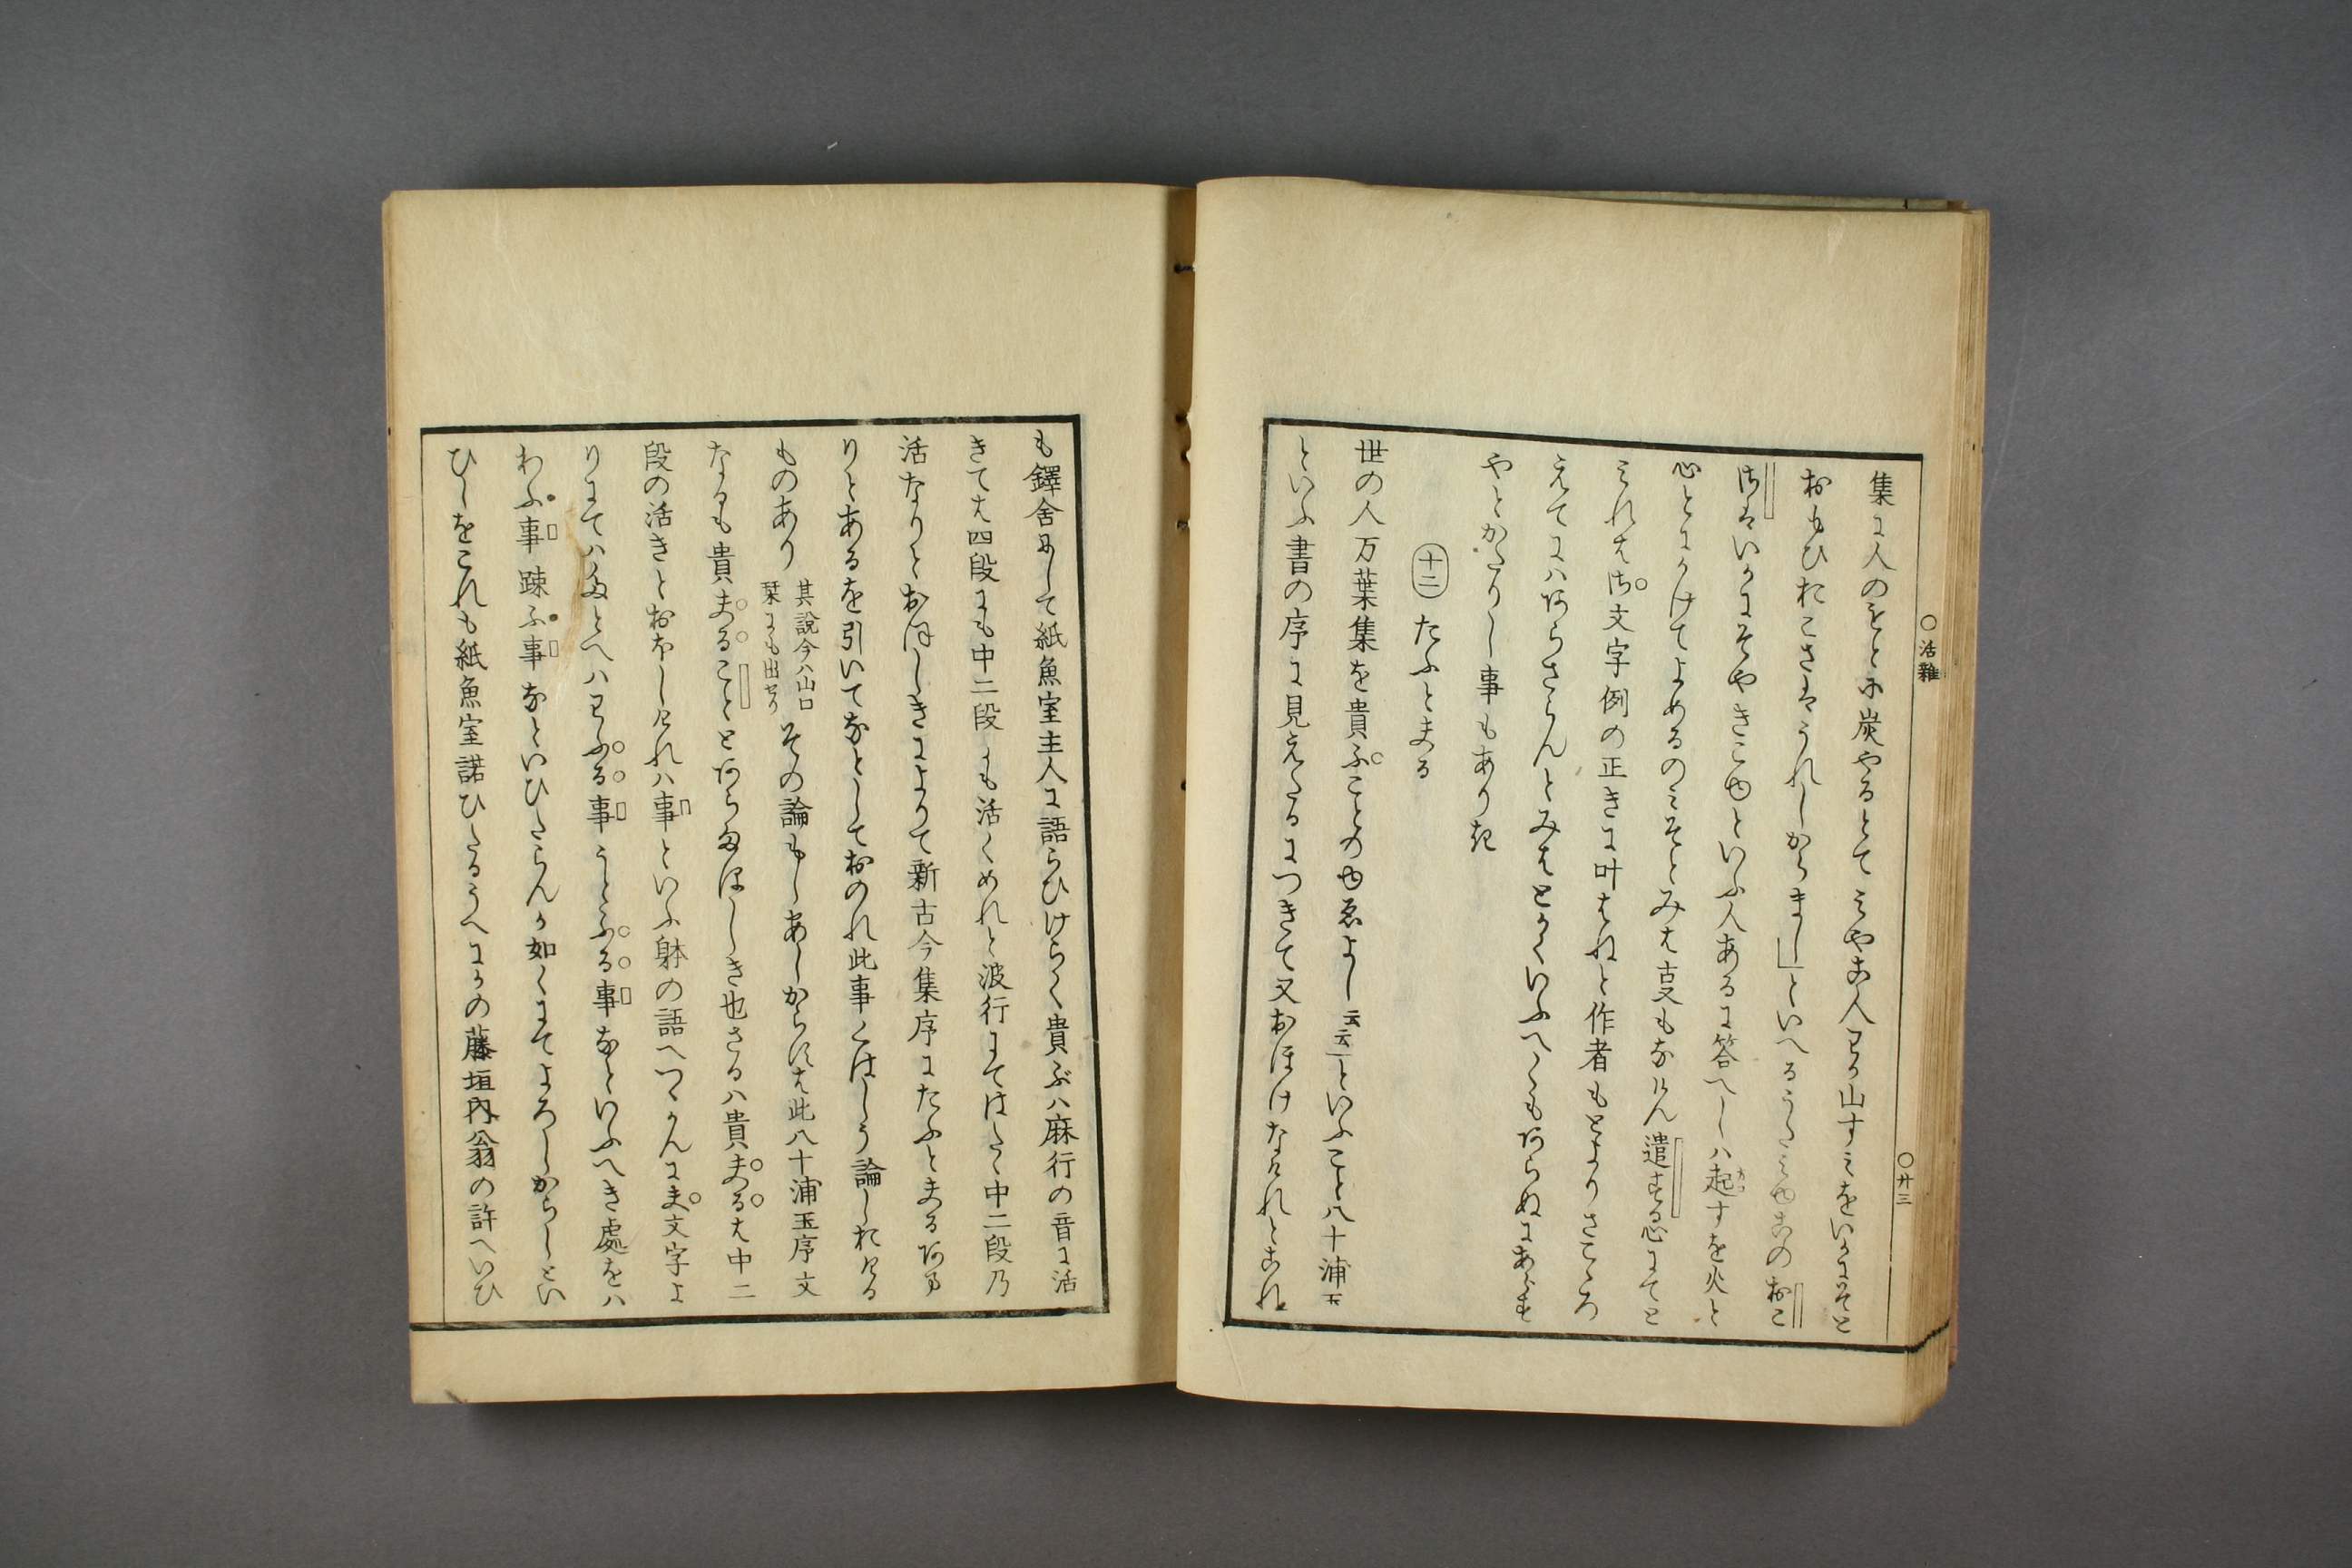 集に人のもとに炭やるとてみやこ人わか山すみをいかにそと
おもひおこさはうれしからまし」といへるうたみゆこのおこ
さはいかにそやきこゆといふ人あるに答へしハ起すを火と
心とにかけてよめるのみそとみは古文もなけん遣する心にてと
みれはさ文字例の正きに叶はねと作者もとよりさこゝろ
えてにハあらさらんとみはとかくいふへくもあらぬにあらす
やとかたりし事もありき
十二 たふとまる
世の人万葉集を貴ふことのゆゑよし云云」といふこと八十浦玉
といふ書の序に見えたるにつきて又おほけなけれとこれ
○活雜
○廿三
も鐸舎にして紙魚室主人に語らひけらく貴ぶハ麻行の音に活
きては四段にも中二段にも活くめれと波行にてはたゝ中二段乃
活なりとおほしきによりて新古今集序にたふとまるあま
りとあるを引いてなとしておのれ此事くはしう論しおける
ものあり
其説今ハ山口
栞にも出せり
その論もしあしからすは此八十浦玉序文
なるも貴まることとあらまほしき也さるハ貴まるは中二
段の活きとおほしけれハ事といふ躰の語へつゝかんにま文字よ
りにてハたとへハわふる事うとふる事なといふへき處をハ
わふ事疎ふ事なといひたらんか如くにてよろしからしとい
ひしをこれも紙魚室諾ひたるうへにかの藤垣内翁の許へいひ